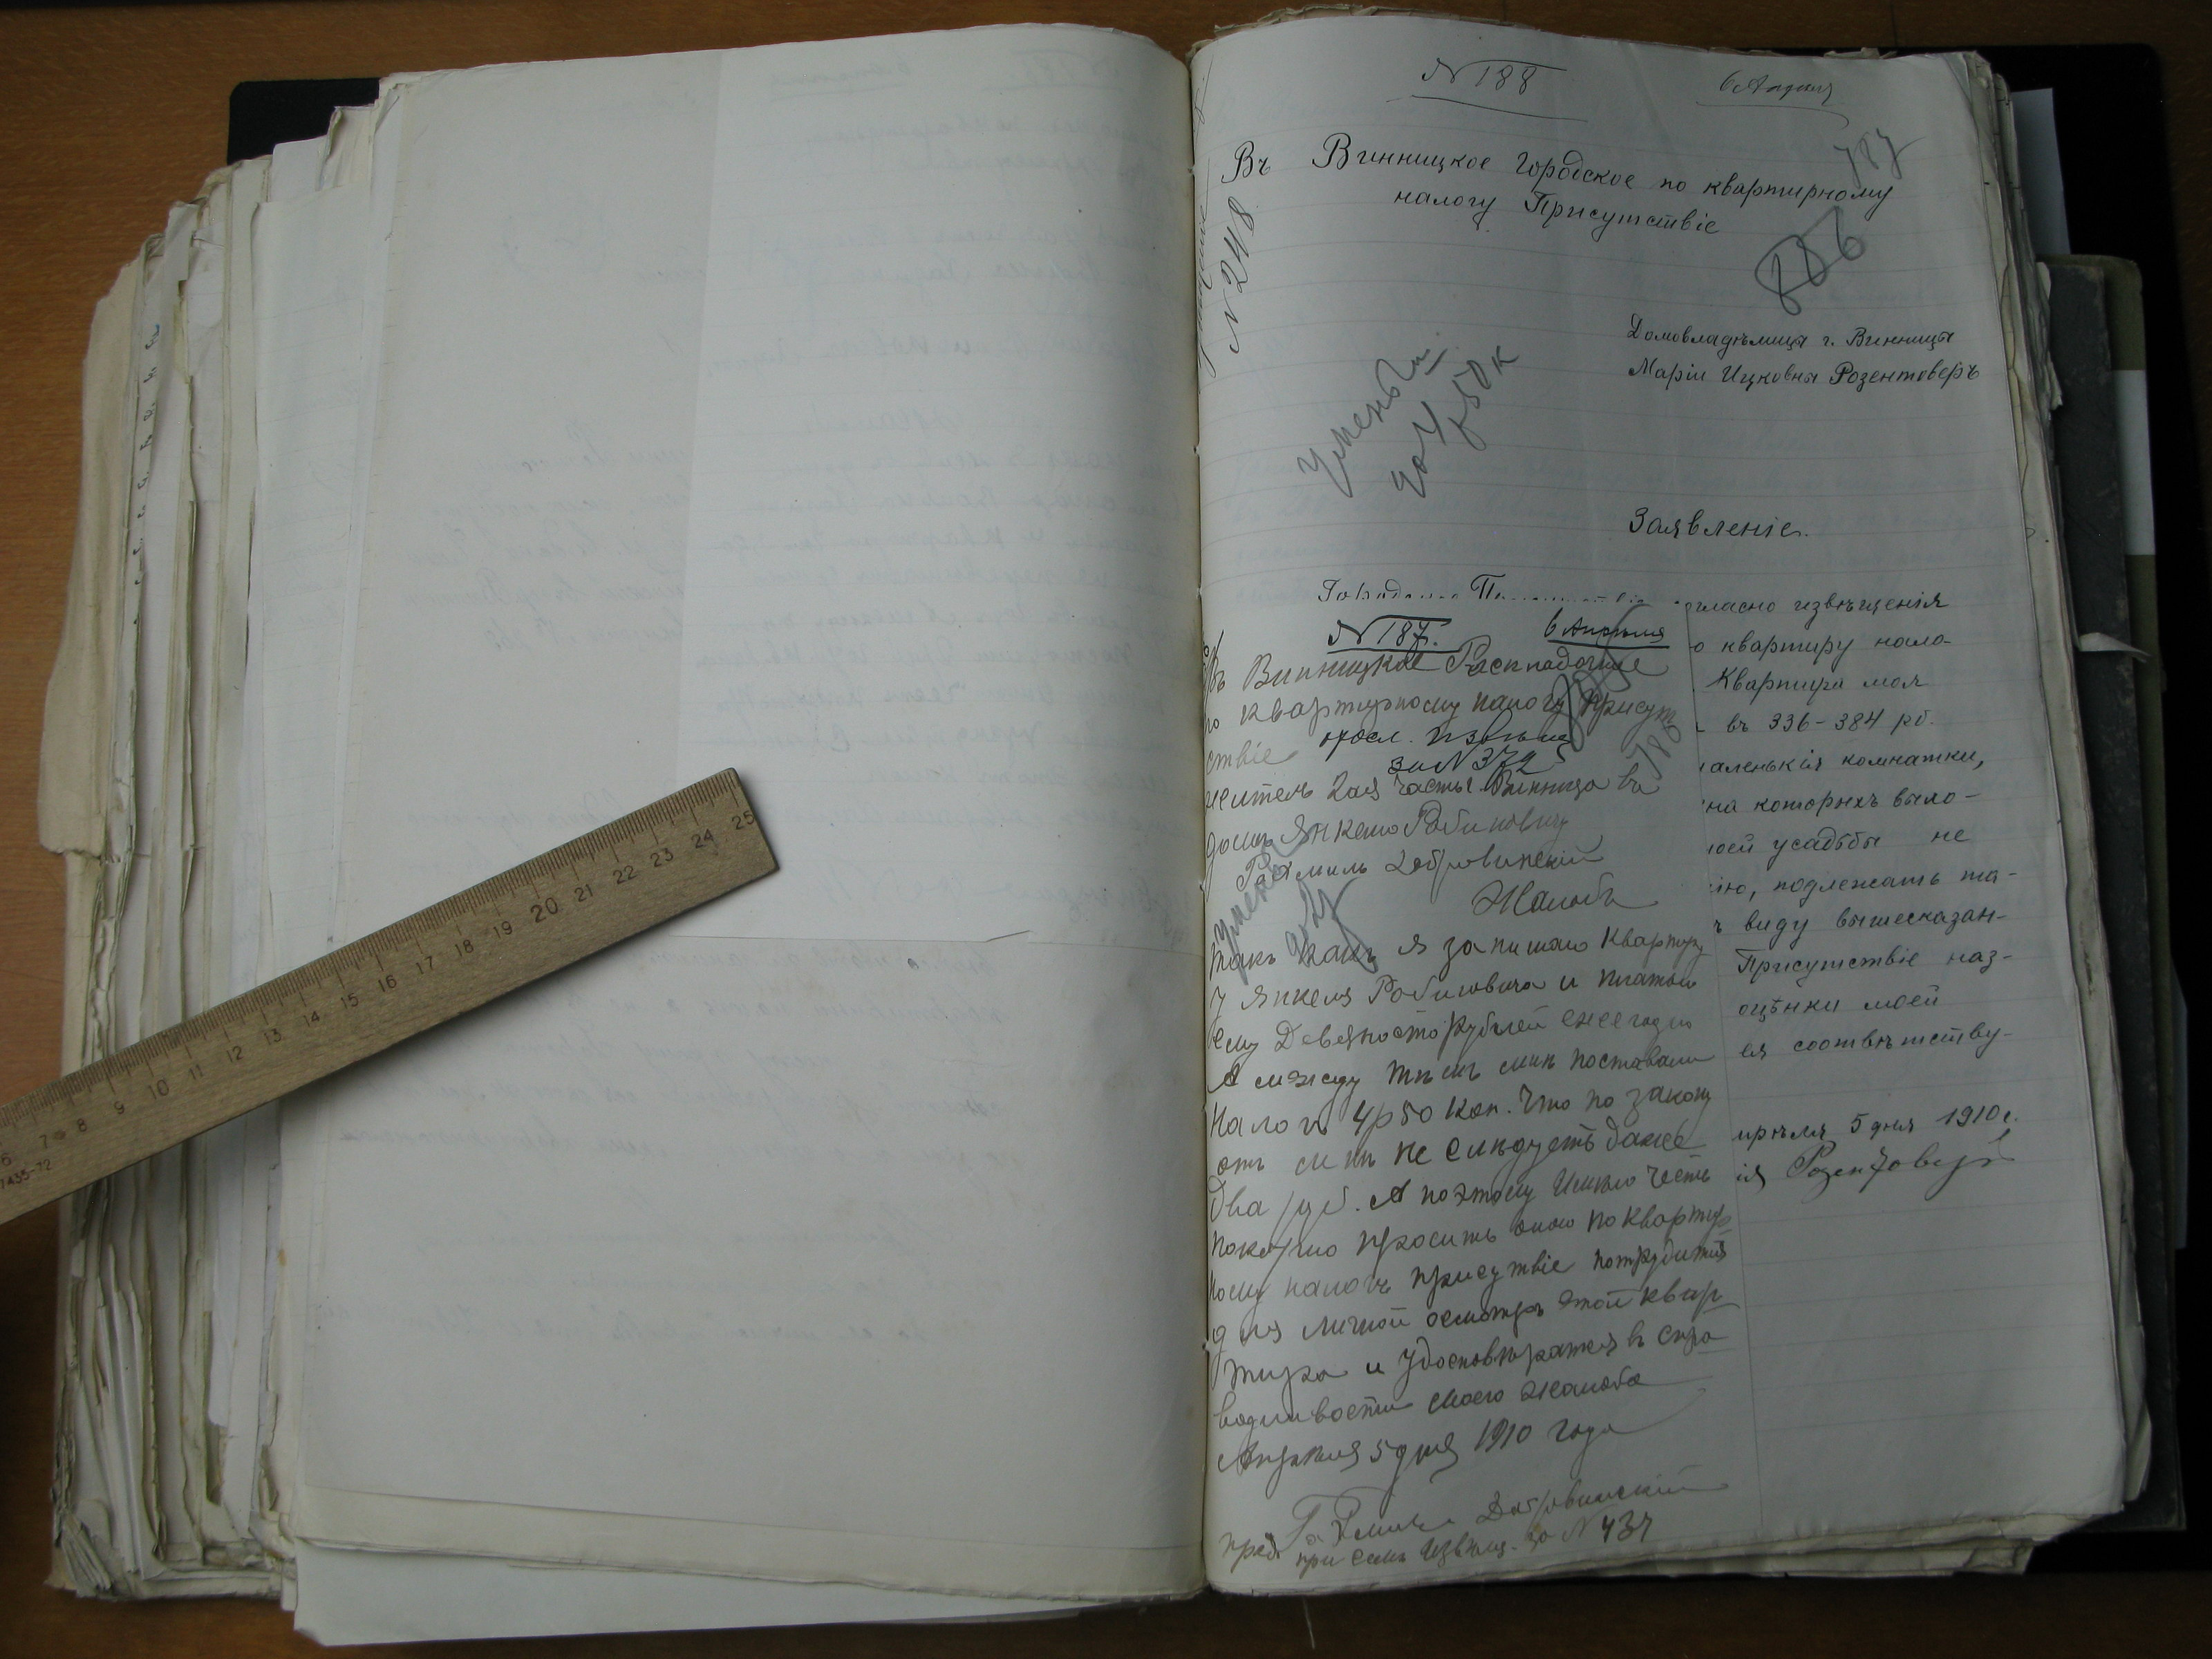 N 188
6 Апреля
187
Въ Винницкое Городское по квартирному
налогу Присутствіе
N 248
886
Домовладѣлица г. Винницы
Маріи Ицковны Розентоверъ
Уменьш
до 4 р 50 к
Заявленіе.
огласно извѣщенія
о квартиру нало-
Квартира моя
въ 336-384 рб.
аленькія комнатки,
на которыхъ было-
моей усадьбы не
ію, подлежать та-
ъ виду вышесказан-
Присутствіе наз-
оцѣнки моей
ея соотвѣтству-
прѣля 5 дня 1910 г.
ія Розентоверъ
N 187.
6 Апреля
Въ Винницкое Раскладочное
по квартирному налогу Присут
ствіе
за N 372
186
жителъ 2ая часть г. Винница въ
домъ Янкеля Рабиновичу
Рахмиль Добровинскій
Жалоба
Такъ какъ я занимаю квартиру
у Янкеля Рабиновича и платою
ему Девяносто рублей ежегодно
А между тѣмъ мнѣ поставили
Налогъ 4 р 50 коп. Что по закону
отъ мнѣ не слѣдуетъ даже
два руб. А поэтому Имѣю честь
покорно просить оною по квартир
ному налогъ присутвіе потрудится
для личной осмотръ этой квар
тира и удостовѣрится въ спра
ведливости моего жалоба
Апрѣля 5 дня 1910 года
Рахмиль Добровинскій
при семъ Извѣщ. за N 437
6 7 8 9 10 11 12 13 14 15 16 17 18 19 20 21 22 23 24 25